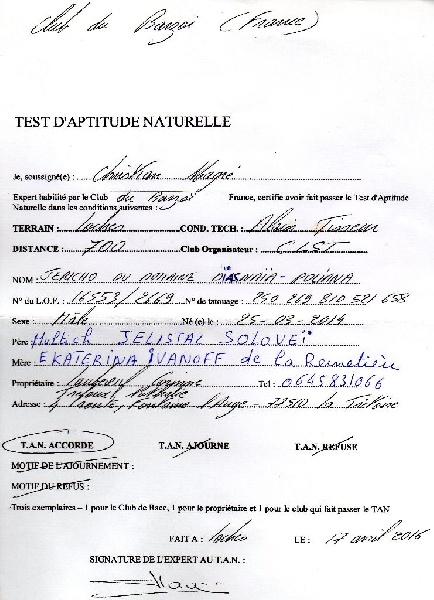 Club du Barzoï (France)
TEST D'APTITUDE NATURELLE
Je, soussigné(e) : Christian
Expert habilité par le Club du Barzoï France, certifie avoir fait passer le Test d'Aptitude
Naturelle dans les conditions suivantes :
TERRAIN : Loches COND. TECH. : Alain
DISTANCE : 700 Club Organisateur : CLST
NOM JERICHO DU DOMAINE POLIANA
N° du L.O.F. 16553/2169 N° de tatouage : 250 269 810 521 658
Sexe Mâle Né(e) le : 25-03-2014
Père Multich JELISTAL SOLOVEÏ
Mère EKATERINA IVANOFF de la Romelière
Propriétaire : Tel : 0645831066
Adresse : Fontaine
T.A.N. ACCORDE T.A.N. AJOURNE T.A.N. REFUSE
MOTIF DE L'AJOURNEMENT :
MOTIF DU REFUS :
Trois exemplaires – 1 pour le Club de Race, 1 pour le propriétaire et 1 pour le club qui fait passer le TAN
FAIT A : Loches LE : 17 avril 2016
SIGNATURE DE L'EXPERT AU T.A.N. :